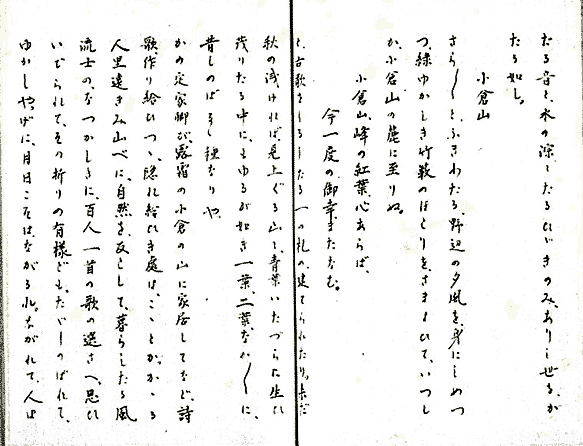 たる音と、水の深したるひゞきのみ、ありし世るが
たる如し。
小倉山
さら〱と、ふきわたる、野辺の夕風を、身にしめつ
つ、緑ゆかしき竹藪のほとりを、さまよひて、いつし
か、小倉山の麓に至りぬ。
小倉山峰の紅葉心あらば、
今一度の御幸またなむ。
と、古歌をしるしたる一つの札の、建てられたり。未だ
秋の浅ければ、見上ぐる山も、青葉いたづらに生ひ
茂りたる中に、もゆるが如き一葉、二葉、なか〱に、
昔しのばるゝ種なりや。
かの定家卿が、露霜の小倉の山に家居してなど、詩
歌、作り給ひつゝ、隠れ給ひき處は、こゝとか。かゝる
人里遠きみ山べに、自然を友として、暮らしたる風
流士の、なつかしきに、百人一首の歌の選さへ、思ひ
いでられて、その折りの有様ども、たゞしのばれて、
ゆかしや。げに、月日こそは、ながるれ。ながれて、人は